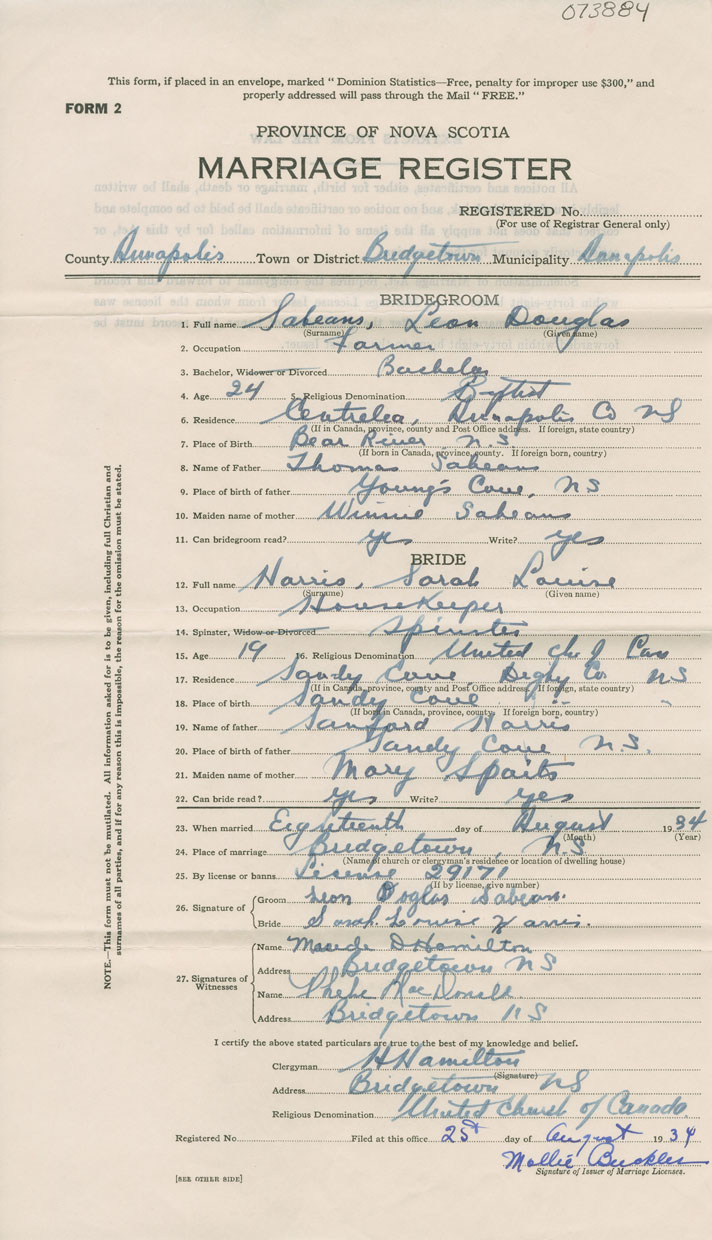 073884
This form, if placed in an envelope, marked " Dominion Statistics—Free, penalty for improper use $300," and
properly addressed will pass through the Mail " FREE."
FORM 2
PROVINCE OF NOVA SCOTIA
MARRIAGE REGISTER
REGISTERED No.
(For use of Registrar General only)
County Annapolis Town or District Bridgetown Municipality Annapolis
BRIDEGROOM
1. Full name Sabeans, Leon Douglas
(Surname) (Given name)
2. Occupation Farmer
3. Bachelor, Widower or Divorced Bachelor
4. Age 24 5. Religious Denomination Baptist
6. Residence Centrelea, Annapolis Co NS
(If in Canada, province, county and Post Office address. If foreign, state country)
7. Place of Birth Bear River N.S.
(If born in Canada, province, county. If foreign born, country)
8. Name of Father Thomas Sabeans
9. Place of birth of father Young's Cove, NS
10. Maiden name of mother Winnie Sabeans
11. Can bridegroom read? yes Write? yes
BRIDE
12. Full name Harris, Sarah Louise
(Surname) (Given name)
13. Occupation Housekeeper
14. Spinster, Widow or Divorced Spinster
15. Age 19 16. Religious Denomination United Ch of Can
17. Residence Sandy Cove Digby Co NS
(If in Canada, province, county and Post Office address. If foreign, state country)
18. Place of birth Sandy Cove " "
(If born in Canada, province, county. If foreign born, country)
19. Name of father Sanford Harris
20. Place of birth of father Sandy Cove N.S.
21. Maiden name of mother Mary Spaits
22. Can bride read? yes Write? yes
23. When married Eighteenth day of August 1934
(Month) (Year)
24. Place of marriage Bridgetown, N.S
(Name of church or clergyman's residence or location of dwelling house)
25. By license or banns License 29171
(If by license, give number)
26. Signature of Groom Leon Doglas Sabean.
Bride Sarah Louise Harris.
27. Signatures of Witnesses Name Maude D Hamilton
Address Bridgetown NS
Name Phebe MacDonall
Address Bridgetown NS
I certify the above stated particulars are true to the best of my knowledge and belief.
Clergyman H Hamilton
(Signature)
Address Bridgetown NS
Religious Denomination United Church of Canada
Registered No. Filed at this office 25th day of August 1934
Mollie Buckler
Signature of Issuer of Marriage Licenses.
[SEE OTHER SIDE]
NOTE.—This form must not be mutilated. All information asked for is to be given, including full Christian and
surnames of all parties, and if for any reason this is impossible, the reason for the omission must be stated.